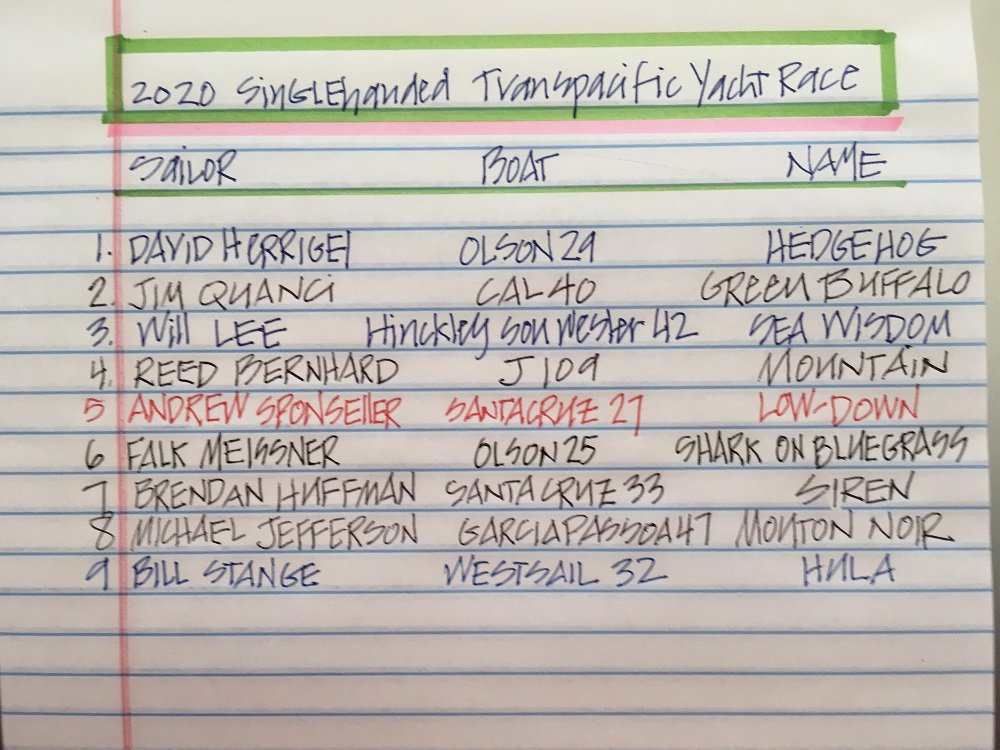 2020 SingLEhanded Transpacific Yacht Race
SaiLOR BOAT NAME
1. DAVID HERRIGEl OLSON 29 HEDGEHOG
2. JIM QUANCi CAL 40 GREEN BUFFALO
3. Will LEE Hinckley Sou Wester 42 SEA WISDOM
4. REED BERNHARD J 109 MOUNTAiN
5 ANDREW SPONSEllER SANTACRUZ 27 LOW-DOWN
6 FALK MEISSNER OLSON 25 SHARK ON BLUEGRASS
7 BRENDAN HUFFMAN SANTA CRUZ 33 SIREN
8 MICHAEL JEFFERSON GARCIA PASSOA 47 MOUTON NOIR
9 BILL STANGE WESTSAIL 32 HULA